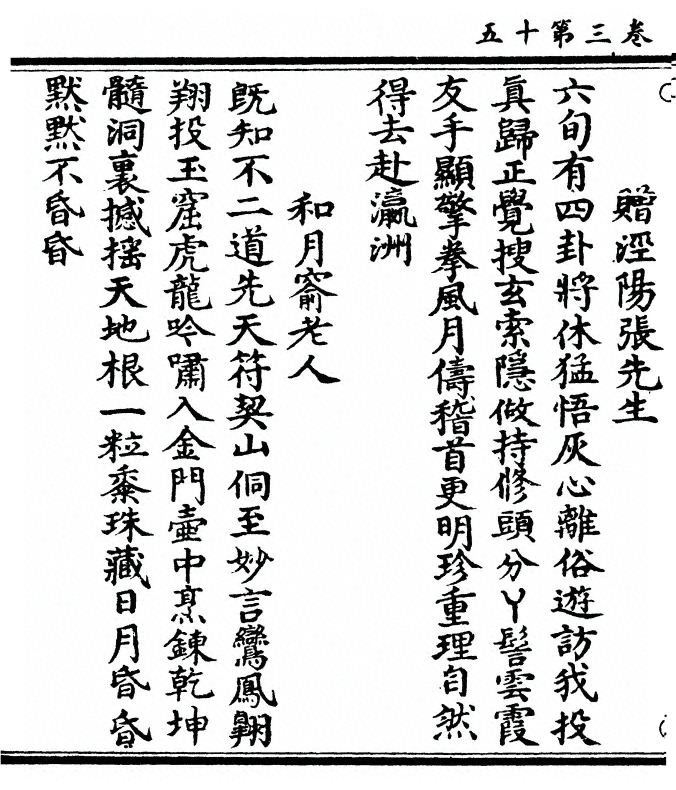 卷三第十五
贈涇陽張先生
六旬有四卦將休猛悟灰心離俗遊訪我投
眞歸正覺搜玄索隱做持修頭分丫髻雲霞
友手顯擎拳風月儔稽首更明珍重理自然
得去赴瀛洲
和月窬老人
既知不二道先天符契山侗至妙言鸞鳳翱
翔投玉窟虎龍吟嘯入金門壺中烹鍊乾坤
髓洞裏撼搖天地根一粒黍珠藏日月昏昏
默默不昏昏